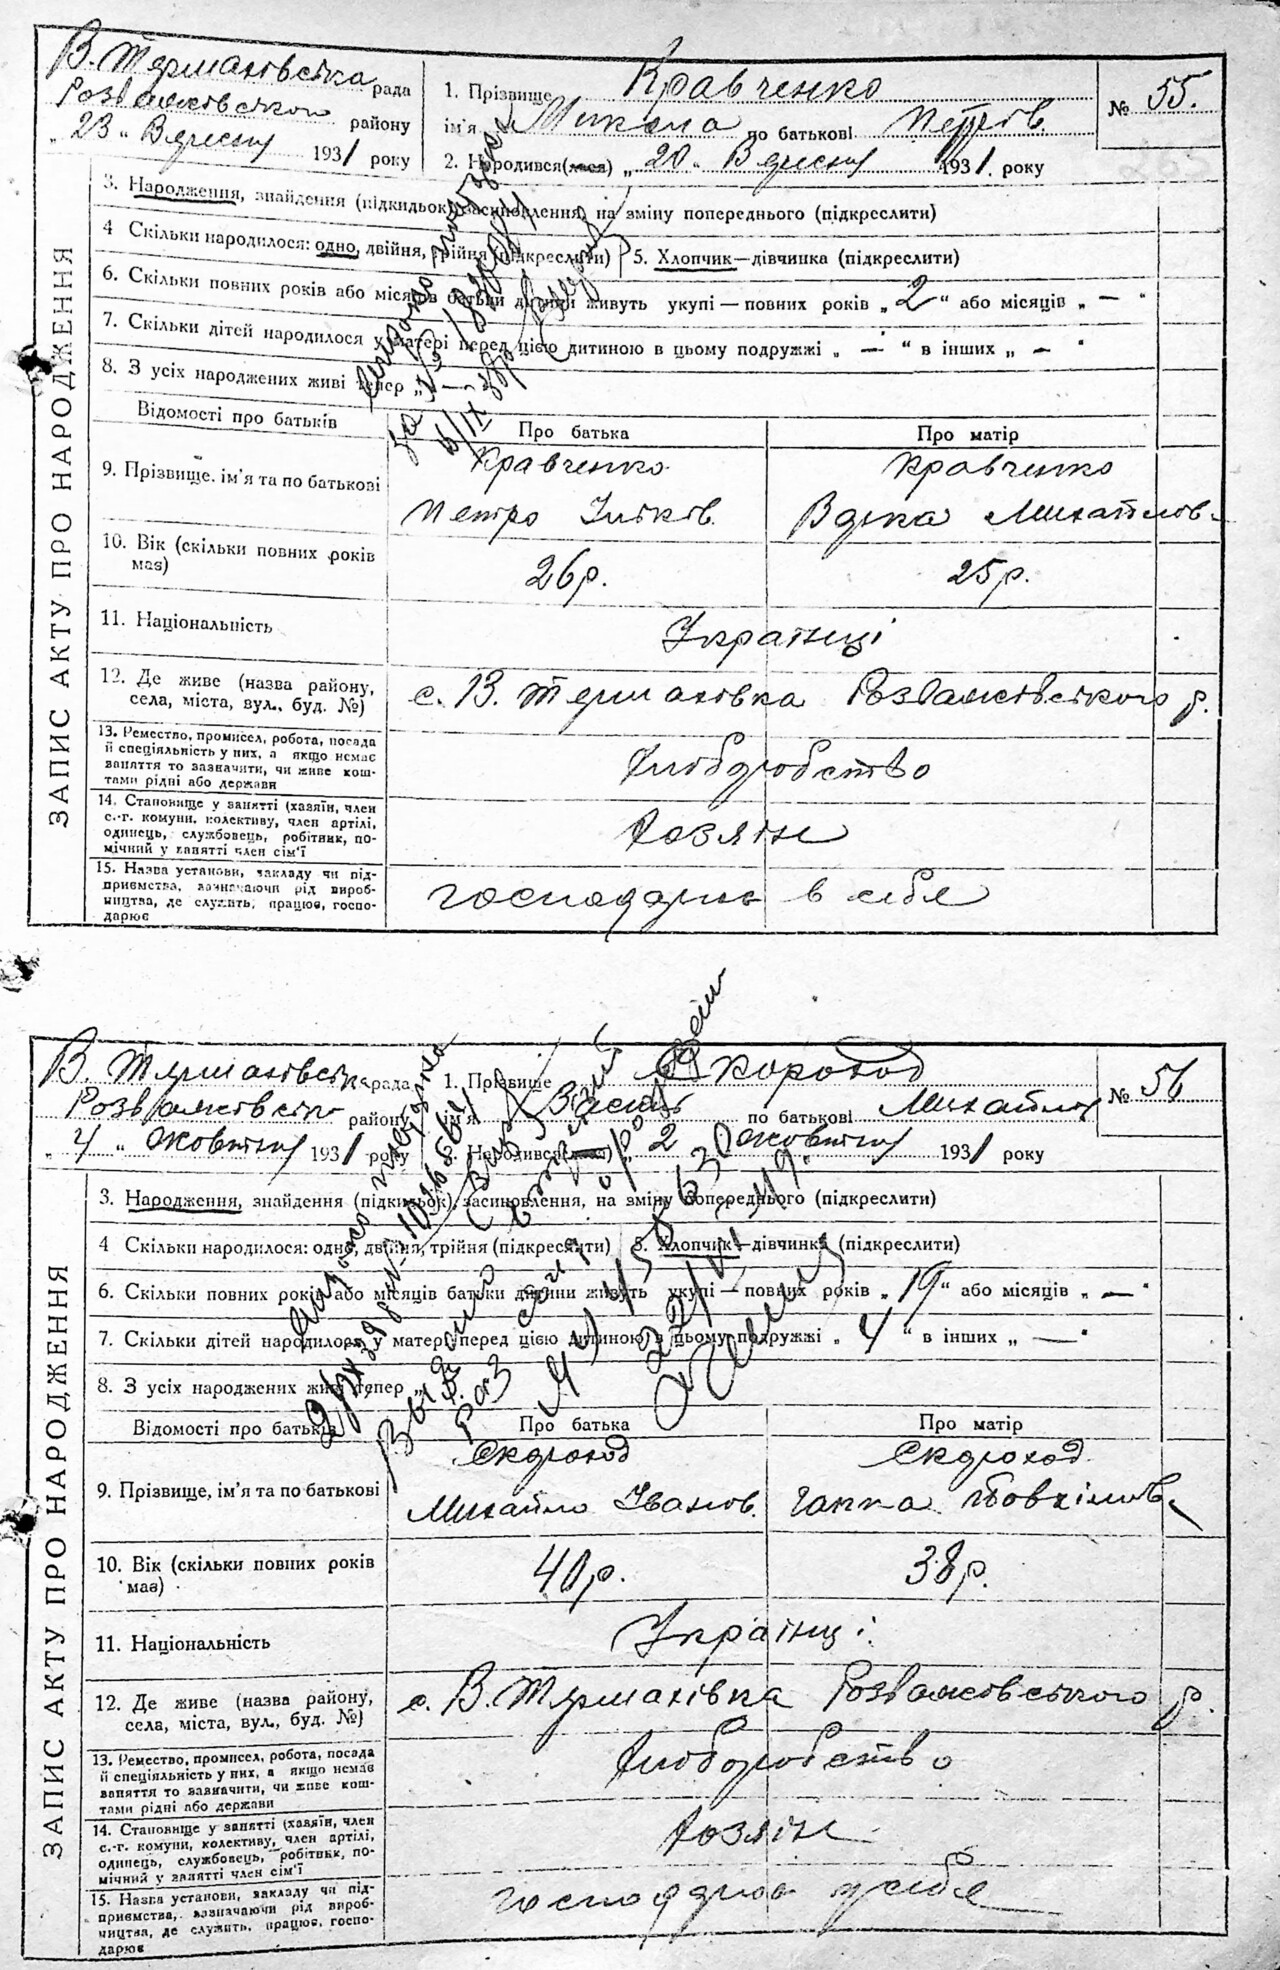 В. Термахівська рада
Розважівського району
„ 23 „ Вересня 1931 року
1. Прізвище Кравченко
ім'я Микола по батькові Петрів
2. Народився(лася) „ 20 „ Вересня 1931 року
№ 55.
ЗАПИС АКТУ ПРО НАРОДЖЕННЯ
3. Народження, знайдення (підкидьок) засиновлення, на зміну попереднього (підкреслити)
4 Скільки народилося: одно, двійня, трійня (підкреслити)
5. Хлопчик—дівчинка (підкреслити)
6. Скільки повних років або місяців батьки дитини живуть укупі — повних років „ 2 “ або місяців „ — “
7. Скільки дітей народилося у матері перед цією дитиною в цьому подружжі „ — “ в інших „ — “
8. З усіх народжених живі тепер „ —
Відомості про батьків
Про батька
Про матір
9. Прізвище, ім'я та по батькові
Кравченко
Петро Ільків.
Кравченко
Вдяка Михайлов.
10. Вік (скільки повних років має)
26 р.
25 р.
11. Національність
Українці
12. Де живе (назва району, села, міста, вул., буд. №)
с. В. Термахівка Розважівського р.
13. Ремество, промисел, робота, посада
й спеціяльність у них, а якщо немає
заняття то зазначити, чи живе кош-
тами рідні або держави
Хліборобство
14. Становище у занятті (хазяїн, член
с.-г. комуни, колективу, член артілі,
одинець, службовець, робітник, по-
мічний у занятті член сім'ї
Хозяїн
15. Назва установи, закладу чи під-
приємства, зазначаючи рід вироб-
ництва, де служить, працює, госпо-
дарює
господарює в себе
В. Термахівська рада
Розважівськ району
„ 4 „ Жовтня 1931 року
1. Прізвище Скороход
ім'я Василь по батькові Михайлов
2. Народився(лася) „ 2 „ Жовтня 1931 року
№ 56
ЗАПИС АКТУ ПРО НАРОДЖЕННЯ
3. Народження, знайдення (підкидьок), засиновлення, на зміну попереднього (підкреслити)
4 Скільки народилося: одно, двійня, трійня (підкреслити)
5. Хлопчик—дівчинка (підкреслити)
6. Скільки повних років або місяців батьки дитини живуть укупі — повних років „ 19 “ або місяців „ — “
7. Скільки дітей народилося у матері перед цією дитиною в цьому подружжі „ 4 “ в інших „ — “
8. З усіх народжених живі тепер „
Відомості про батьків
Про батька
Про матір
9. Прізвище, ім'я та по батькові
Скороход
Михайло Іванов.
Скороход
Ганна
10. Вік (скільки повних років має)
40 р.
38 р.
11. Національність
Українці.
12. Де живе (назва району, села, міста, вул., буд. №)
с. В. Термахівка Розважівського р.
13. Ремество, промисел, робота, посада
й спеціяльність у них, а якщо немає
заняття то зазначити, чи живе кош-
тами рідні або держави
Хліборобство
14. Становище у занятті (хазяїн, член
с.-г. комуни, колективу, член артілі,
одинець, службовець, робітник, по-
мічний у занятті член сім'ї
Хозяїн
15. Назва установи, закладу чи під-
приємства, зазначаючи рід вироб-
ництва, де служить, працює, госпо-
дарює
господарює у себе